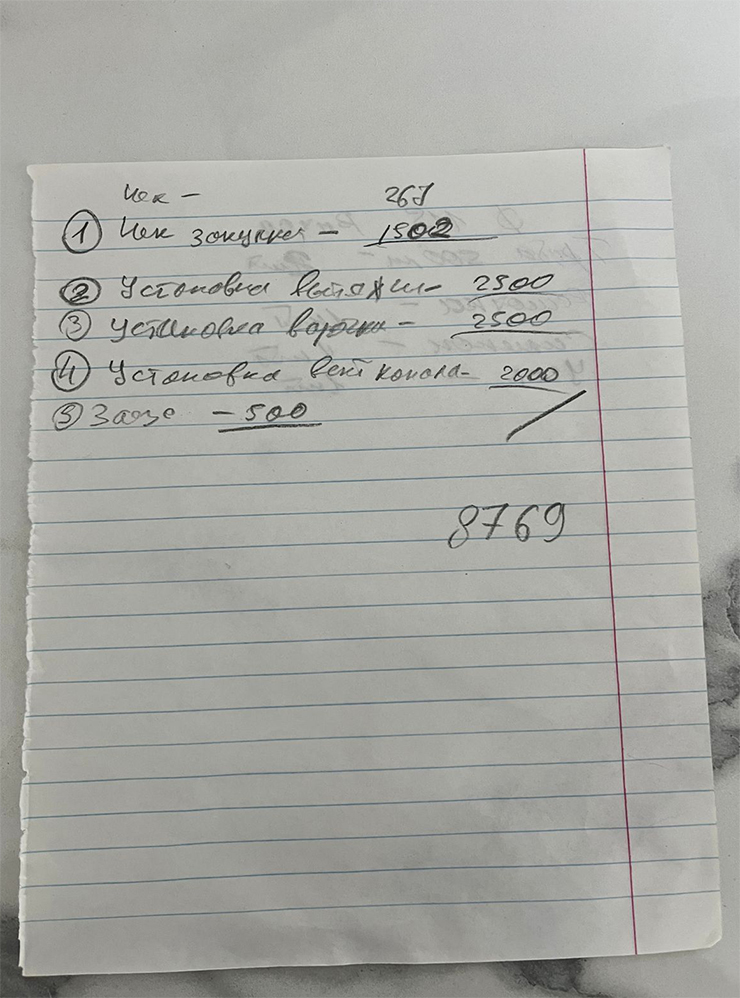 Чек - 267
① Чек закупка - 1502
② Установка вытяжки - 2500
③ Установка варочн - 2500
④ Установка вент канала - 2000
⑤ - 500
8769